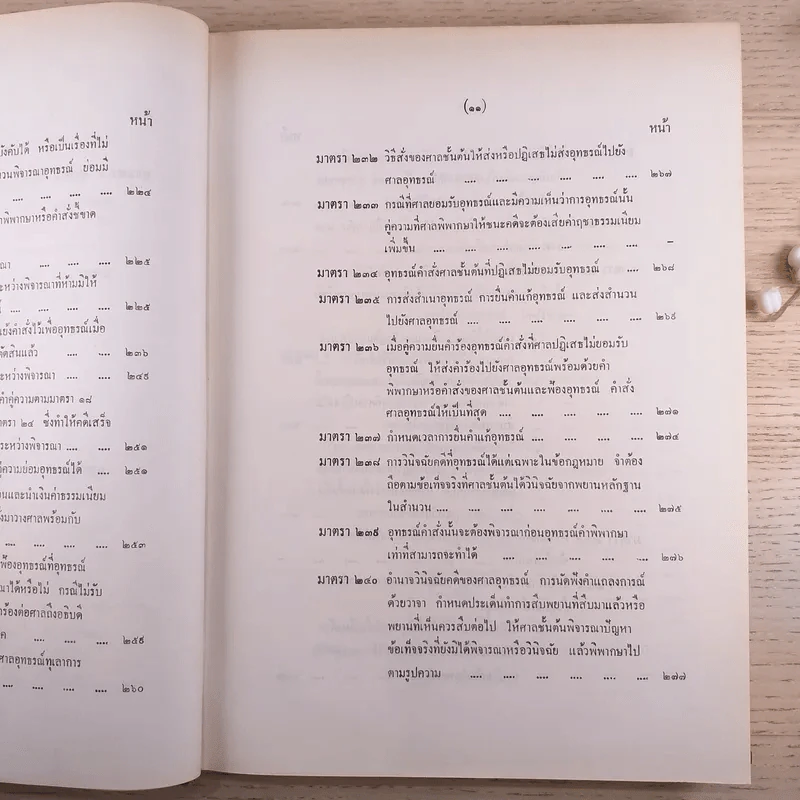 หน้า
ังคับได้ หรือเป็นเรื่องที่ไม่
วนพิจารณาอุทธรณ์ ย่อมมี
.... .... .... .... ๒๒๔
าพิพากษาหรือคำสั่งชี้ขาด
ณา .... .... .... ๒๒๕
ะหว่างพิจารณาที่ห้ามมิให้
์ .... .... .... .... ๒๒๕
แย้งคำสั่งไว้เพื่ออุทธรณ์เมื่อ
ตัดสินแล้ว .... .... ๒๓๖
ะหว่างพิจารณา .... .... ๒๔๙
คำคู่ความตามมาตรา ๑๘
าตรา ๒๔ ซึ่งทำให้คดีเสร็จ
ระหว่างพิจารณา .... .... ๒๕๑
คู่ความย่อมอุทธรณ์ได้ .... ๒๕๑
นและนำเงินค่าธรรมเนียม
งมาวางศาลพร้อมกับ
.... .... .... .... ๒๕๓
ฟ้องอุทธรณ์ที่อุทธรณ์
ณาได้หรือไม่ กรณีไม่รับ
ร้องต่อศาลถึงอธิบดี
ค .... .... .... ๒๕๙
ศาลอุทธรณ์ทุเลาการ
.... .... .... .... ๒๖๐
(๑๑)
หน้า
มาตรา ๒๓๒ วิธีสั่งของศาลชั้นต้นให้ส่งหรือปฏิเสธไม่ส่งอุทธรณ์ไปยัง
ศาลอุทธรณ์ .... .... .... .... .... .... ๒๖๗
มาตรา ๒๓๓ กรณีที่ศาลยอมรับอุทธรณ์และมีความเห็นว่าการอุทธรณ์นั้น
คู่ความที่ศาลพิพากษาให้ชนะคดีจะต้องเสียค่าฤชาธรรมเนียม
เพิ่มขึ้น .... .... .... .... .... .... .... –
มาตรา ๒๓๔ อุทธรณ์คำสั่งศาลชั้นต้นที่ปฏิเสธไม่ยอมรับอุทธรณ์ .... ๒๖๘
มาตรา ๒๓๕ การส่งสำเนาอุทธรณ์ การยื่นคำแก้อุทธรณ์ และส่งสำนวน
ไปยังศาลอุทธรณ์ .... .... .... .... .... .... ๒๖๙
มาตรา ๒๓๖ เมื่อคู่ความยื่นคำร้องอุทธรณ์คำสั่งที่ศาลปฏิเสธไม่ยอมรับ
อุทธรณ์ ให้ส่งคำร้องไปยังศาลอุทธรณ์พร้อมด้วยคำ
พิพากษาหรือคำสั่งของศาลชั้นต้นและฟ้องอุทธรณ์ คำสั่ง
ศาลอุทธรณ์ให้เป็นที่สุด .... .... .... .... .... ๒๗๑
มาตรา ๒๓๗ กำหนดเวลาการยื่นคำแก้อุทธรณ์ .... .... .... .... ๒๗๔
มาตรา ๒๓๘ การวินิจฉัยคดีที่อุทธรณ์ได้แต่เฉพาะในข้อกฎหมาย จำต้อง
ถือตามข้อเท็จจริงที่ศาลชั้นต้นได้วินิจฉัยจากพยานหลักฐาน
ในสำนวน .... .... .... .... .... .... .... ๒๗๕
มาตรา ๒๓๙ อุทธรณ์คำสั่งนั้นจะต้องพิจารณาก่อนอุทธรณ์คำพิพากษา
เท่าที่สามารถจะทำได้ .... .... .... .... .... ๒๗๖
มาตรา ๒๔๐ อำนาจวินิจฉัยคดีของศาลอุทธรณ์ การนัดฟังคำแถลงการณ์
ด้วยวาจา กำหนดประเด็นทำการสืบพยานที่สืบมาแล้วหรือ
พยานที่เห็นควรสืบต่อไป ให้ศาลชั้นต้นพิจารณาปัญหา
ข้อเท็จจริงที่ยังมิได้พิจารณาหรือวินิจฉัย แล้วพิพากษาไป
ตามรูปความ .... .... .... .... .... .... ๒๗๗